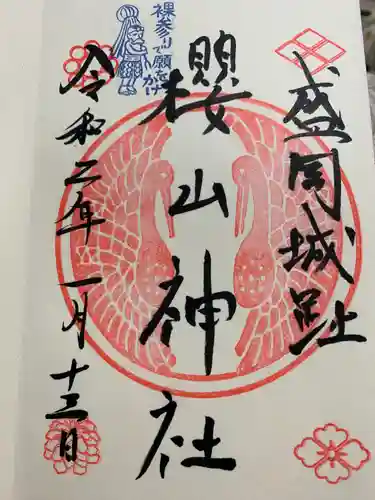 盛岡城跡
櫻山神社
裸参りで願をかけ
令和二年一月十三日